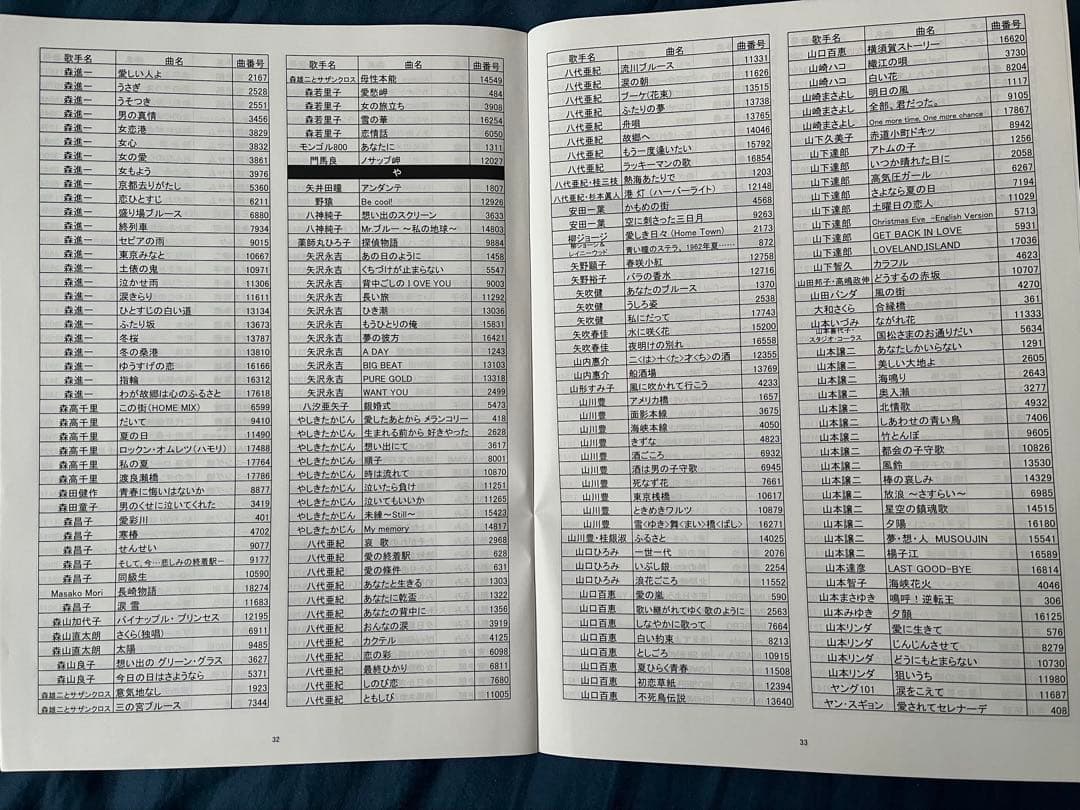 歌手名 曲名 曲番号
森進一 愛しい人よ 2167
森進一 うさぎ 2528
森進一 うそつき 2551
森進一 男の真情 3456
森進一 女恋港 3829
森進一 女心 3832
森進一 女の愛 3861
森進一 女もよう 3976
森進一 京都去りがたし 5360
森進一 恋ひとすじ 6211
森進一 盛り場ブルース 6880
森進一 終列車 7934
森進一 セピアの雨 9015
森進一 東京みなと 10667
森進一 土俵の鬼 10971
森進一 泣かせ雨 11306
森進一 涙きらり 11611
森進一 ひとすじの白い道 13134
森進一 ふたり坂 13673
森進一 冬桜 13787
森進一 冬の桑港 13810
森進一 ゆうすげの恋 16166
森進一 指輪 16312
森進一 わが故郷は心のふるさと 17618
森高千里 この街(HOME MIX) 6599
森高千里 だいて 9410
森高千里 夏の日 11490
森高千里 ロックン・オムレツ(ハモリ) 17488
森高千里 私の夏 17764
森高千里 渡良瀬橋 17786
森田健作 青春に悔いはないか 8877
森田童子 男のくせに泣いてくれた 3419
森昌子 愛彩川 401
森昌子 寒椿 4702
森昌子 せんせい 9077
森昌子 そして、今…悲しみの終着駅- 9177
森昌子 同級生 10590
Masako Mori 長崎物語 18274
森昌子 涙雪 11683
森山加代子 パイナップル・プリンセス 12195
森山直太朗 さくら(独唱) 6911
森山直太朗 太陽 9485
森山良子 想い出の グリーン・グラス 3627
森山良子 今日の日はさようなら 5371
森雄二とサザンクロス 意気地なし 1923
森雄二とサザンクロス 三の宮ブルース 7344
歌手名 曲名 曲番号
森雄二とサザンクロス 母性本能 14549
森若里子 愛愁岬 484
森若里子 女の旅立ち 3908
森若里子 雪の華 16254
森若里子 恋情話 6050
モンゴル800 あなたに 1311
門馬良 ノサップ岬 12027
や
矢井田瞳 アンダンテ 1807
野猿 Be cool! 12926
八神純子 想い出のスクリーン 3633
八神純子 Mr.ブルー ~私の地球~ 14803
薬師丸ひろ子 探偵物語 9884
矢沢永吉 あの日のように 1458
矢沢永吉 くちづけが止まらない 5547
矢沢永吉 背中ごしの I OVE YOU 9003
矢沢永吉 長い旅 11292
矢沢永吉 ひき潮 13036
矢沢永吉 もうひとりの俺 15831
矢沢永吉 夢の彼方 16421
矢沢永吉 A DAY 1243
矢沢永吉 BIG BEAT 13103
矢沢永吉 PURE GOLD 13318
矢沢永吉 WANT YOU 2499
八汐亜矢子 銀婚式 5473
やしきたかじん 愛したあとから メランコリー 418
やしきたかじん 生まれる前から 好きやった 2628
やしきたかじん 想い出にて 3617
やしきたかじん 順子 8001
やしきたかじん 時は流れて 10870
やしきたかじん 泣いたら負け 11251
やしきたかじん 泣いてもいいか 11265
やしきたかじん 未練~Still~ 15423
やしきたかじん My memory 14817
八代亜紀 哀 歌 2968
八代亜紀 愛の終着駅 628
八代亜紀 愛の条件 631
八代亜紀 あなたと生きる 1303
八代亜紀 あなたに乾盃 1322
八代亜紀 あなたの背中に 1356
八代亜紀 おんなの涙 3919
八代亜紀 カクテル 4125
八代亜紀 恋の彩 6098
八代亜紀 最終ひかり 6811
八代亜紀 しのび恋 7680
八代亜紀 ともしび 11005
32
歌手名 曲名 曲番号
八代亜紀 流川ブルース 11331
八代亜紀 涙の朝 11626
八代亜紀 ブーケ(花束) 13515
八代亜紀 ふたりの夢 13738
八代亜紀 舟唄 13765
八代亜紀 故郷へ 14046
八代亜紀 もう一度逢いたい 15792
八代亜紀 ラッキーマンの歌 16854
八代亜紀・桂三枝 熱海あたりで 1203
八代亜紀・杉本眞人 港 灯 (ハーバーライト) 12148
安田一葉 かもめの街 4568
安田一葉 空に刺さった三日月 9263
柳ジョージ 愛しき日々 (Home Town) 2173
柳ジョージ&レイニーウッド 青い瞳のステラ、1962年夏…… 872
矢野顕子 春咲小紅 12758
矢野裕子 バラの香水 12716
矢吹健 あなたのブルース 1370
矢吹健 うしろ姿 2538
矢吹健 私にだって 17743
矢吹春佳 水に咲く花 15200
矢吹春佳 夜明けの別れ 16558
山内惠介 二<は>十<た>才くち>の酒 12355
山内惠介 船酒場 13769
山形すみ子 風に吹かれて行こう 4233
山川豊 アメリカ橋 1657
山川豊 面影本線 3675
山川豊 海峡本線 4050
山川豊 きずな 4823
山川豊 酒ごころ 6932
山川豊 酒は男の子守歌 6945
山川豊 死なず花 7661
山川豊 東京桟橋 10617
山川豊 ときめきワルツ 10879
山川豊 雪<ゆき>舞<まい>橋<ばし> 16271
山川豊・桂銀淑 ふるさと 14025
山口ひろみ 一世一代 2076
山口ひろみ いぶし銀 2254
山口ひろみ 浪花ごころ 11552
山口百恵 愛の嵐 590
山口百恵 歌い継がれてゆく歌のように 2563
山口百恵 しなやかに歌って 7664
山口百恵 白い約束 8213
山口百恵 としごろ 10915
山口百恵 夏ひらく青春 11508
山口百恵 初恋草紙 12394
山口百恵 不死鳥伝説 13640
歌手名 曲名 曲番号
山口百恵 横須賀ストーリー 16620
山崎ハコ 織江の唄 3730
山崎ハコ 白い花 8204
山崎まさよし 明日の風 1117
山崎まさよし 全部、君だった。 9105
山崎まさよし One more time, One more chance 17867
山下久美子 赤道小町ドキッ 8942
山下達郎 アトムの子 1256
山下達郎 いつか晴れた日に 2058
山下達郎 高気圧ガール 6267
山下達郎 さよなら夏の日 7194
山下達郎 土曜日の恋人 11029
山下達郎 Christmas Eve -English Version 5713
山下達郎 GET BACK IN LOVE 5931
山下達郎 LOVELAND,ISLAND 17036
山下智久 カラフル 4623
山田邦子・高嶋政伸 どうするの赤坂 10707
山田パンダ 風の街 4270
大和さくら 合縁橋 361
山本いづみ ながれ花 11333
スタジオ・コーラス 国松さまのお通りだい 5634
山本譲二 あなたしかいらない 1291
山本譲二 美しい大地よ 2605
山本譲二 海鳴り 2643
山本譲二 奥入瀬 3277
山本譲二 北情歌 4932
山本譲二 しあわせの青い鳥 7406
山本譲二 竹とんぼ 9605
山本譲二 都会の子守歌 10826
山本譲二 風鈴 13530
山本譲二 棒の哀しみ 14329
山本譲二 放浪 ~さすらい~ 6985
山本譲二 星空の鎮魂歌 14515
山本譲二 夕陽 16180
山本譲二 夢・想・人 MUSOUJIN 15541
山本譲二 揚子江 16589
山本達彦 LAST GOOD-BYE 16814
山本智子 海峡花火 4046
山本まさゆき 鳴呼!逆転王 306
山本みゆき 夕顔 16125
山本リンダ 愛に生きて 576
山本リンダ じんじんさせて 8279
山本リンダ どうにもとまらない 10730
山本リンダ 狙いうち 11980
ヤング101 涙をこえて 11687
ヤン・スギョン 愛されてセレナーデ 408
33